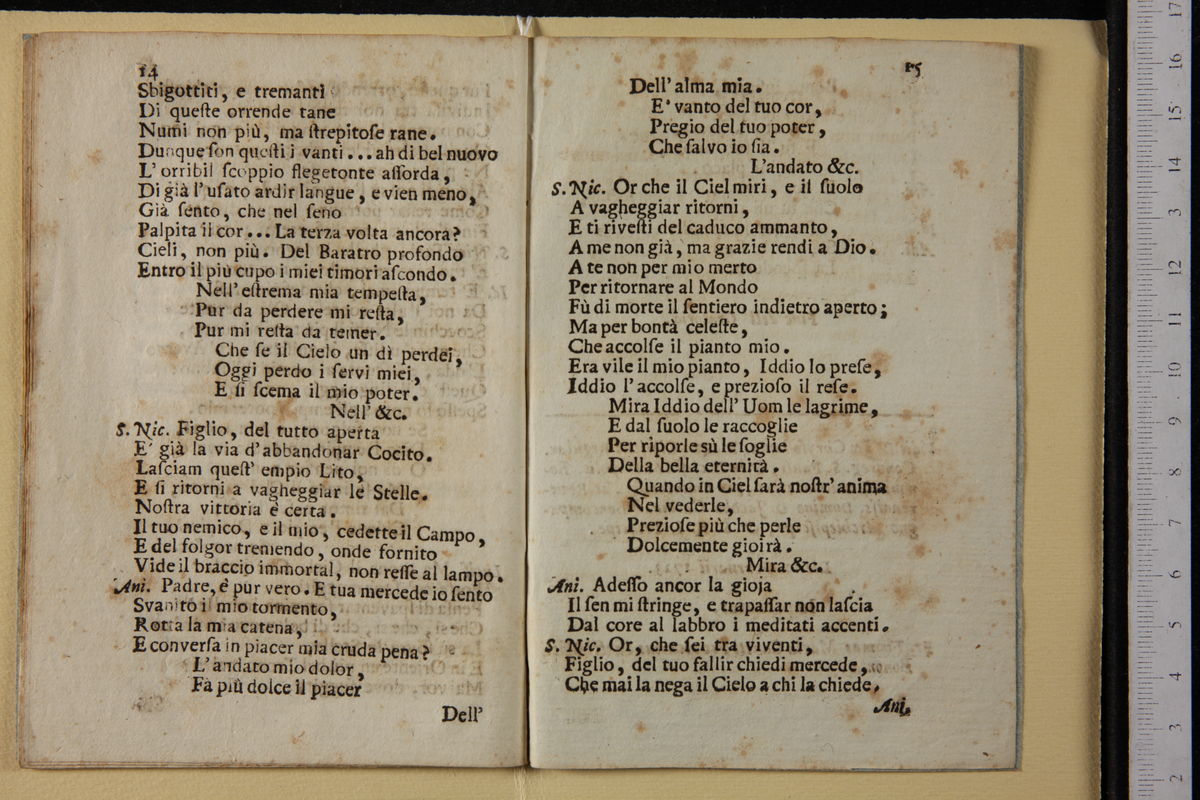 14
Sbigottiti, e tremanti
Di queſte orrende tane
Numi non più, ma ſtrepitoſe rane.
Dunque ſon queſti i vanti... ah di bel nuovo
L'orribil ſcoppio flegetonte aſſorda,
Di già l'uſato ardir langue, e vien meno,
Già ſento, che nel ſeno
Palpita il cor... La terza volta ancora?
Cieli, non più. Del Baratro profondo
Entro il più cupo i miei timori aſcondo.
Nell' eſtrema mia tempeſta,
Pur da perdere mi reſta,
Pur mi reſta da temer.
Che ſe il Cielo un dì perdei,
Oggi perdo i ſervi miei,
E ſi ſcema il mio poter.
Nell' &c.
S. Nic. Figlio, del tutto aperta
E' già la via d'abbandonar Cocito.
Laſciam queſt' empio Lito,
E ſi ritorni a vagheggiar le Stelle.
Noſtra vittoria è certa.
Il tuo nemico, e il mio, cedette il Campo,
E del folgor tremendo, onde fornito
Vide il braccio immortal, non reſſe al lampo.
Ani. Padre, è pur vero. E tua mercede io ſento
Svanito il mio tormento,
Rotta la mia catena,
E converſa in piacer mia cruda pena?
L'andato mio dolor,
Fà più dolce il piacer
Dell'
15
Dell' alma mia.
E' vanto del tuo cor,
Pregio del tuo poter,
Che ſalvo io ſia.
L'andato &c.
S. Nic. Or che il Ciel miri, e il ſuolo
A vagheggiar ritorni,
E ti riveſti del caduco ammanto,
A me non già, ma grazie rendi a Dio.
A te non per mio merto
Per ritornare al Mondo
Fù di morte il ſentiero indietro aperto;
Ma per bontà celeſte,
Che accolſe il pianto mio.
Era vile il mio pianto, Iddio lo preſe,
Iddio l'accolſe, e prezioſo il reſe.
Mira Iddio dell' Uom le lagrime,
E dal ſuolo le raccoglie
Per riporle sù le ſoglie
Della bella eternità.
Quando in Ciel ſarà noſtr' anima
Nel vederle,
Prezioſe più che perle
Dolcemente gioirà.
Mira &c.
Ani. Adeſſo ancor la gioja
Il ſen mi ſtringe, e trapaſſar non laſcia
Dal core al labbro i meditati accenti.
S. Nic. Or, che ſei tra viventi,
Figlio, del tuo fallir chiedi mercede,
Che mai la nega il Cielo a chi la chiede.
Ani.
17
16
15
14
3
12
11
10
9
8
7
6
5
4
3
2